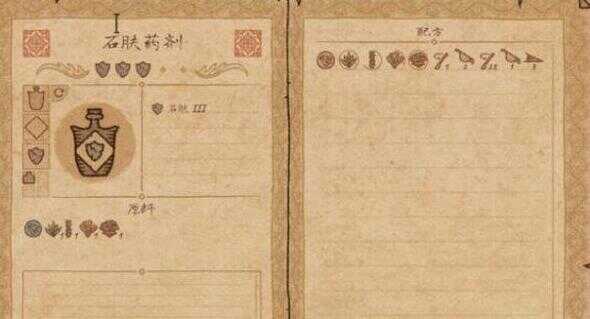 石肤药剂
石肤 III
原料
配方